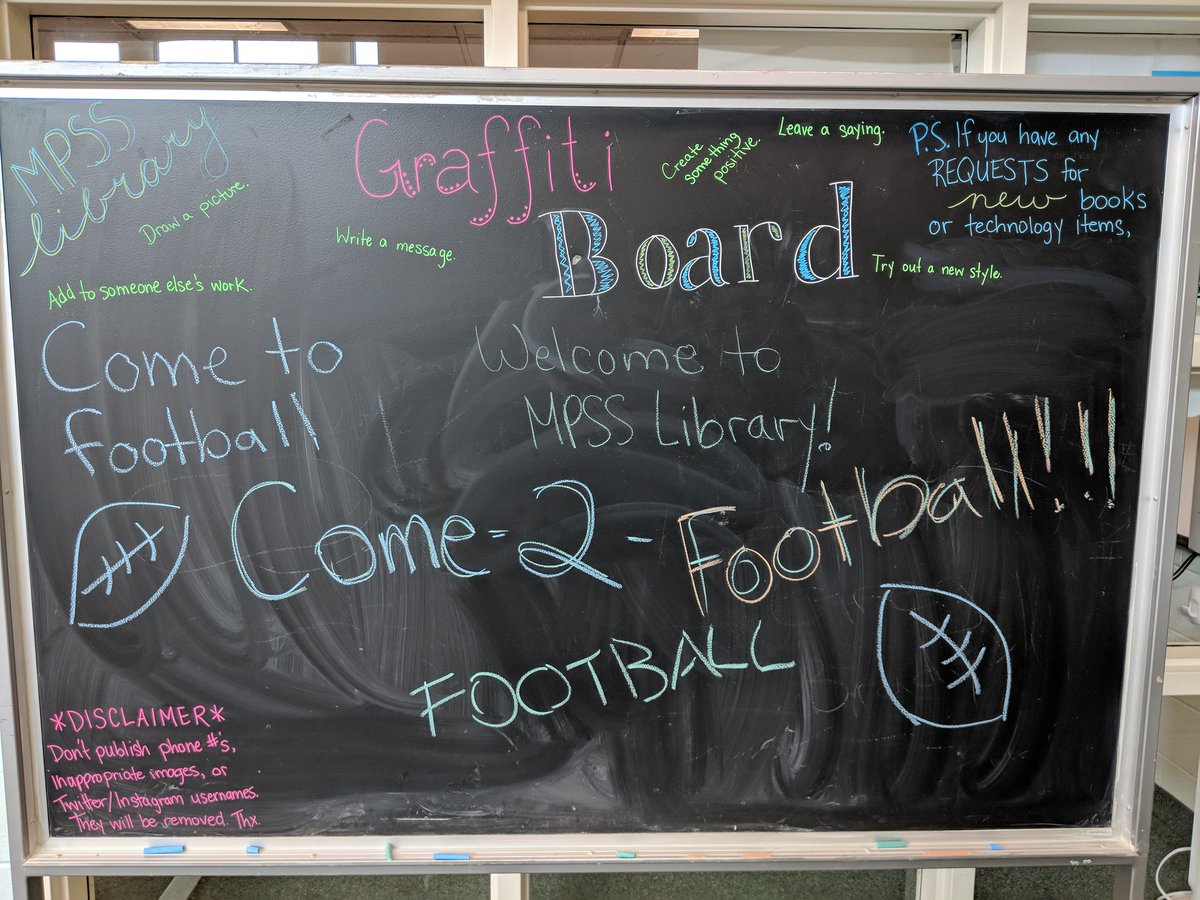 MPSS
library
Draw a picture.
Add to someone else's work.
Graffiti
Board
Write a message.
Create
something
positive.
Leave a saying.
Try out a new style.
P.S. If you have any
REQUESTS for
new books
or technology items,
Come to
football
Welcome to
MPSS Library!
Come-2-Football!!!
FOOTBALL
*DISCLAIMER*
Don't publish phone #'s,
inappropriate images, or
Twitter/Instagram usernames.
They will be removed. Thx.